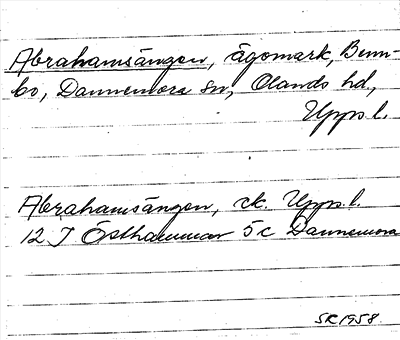 Abrahamsängen, ägomark, Bunn-
bo, Dannemora sn, Olands hd,
Upps. l.
Abrahamsängen, ek. Upps. l.
12 I Östhammar 5c Dannemora
SR 1958.